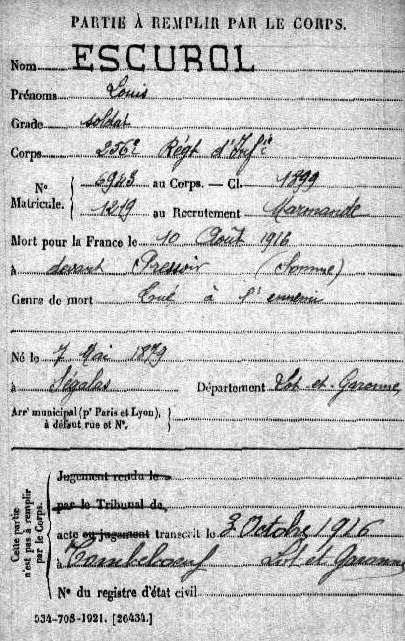 PARTIE À REMPLIR PAR LE CORPS.
Nom ESCUROL
Prénoms Louis
Grade soldat
Corps 256e Régt d'Infie
N° Matricule. { 6943 au Corps. — Cl. 1899
1219 au Recrutement Marmande
Mort pour la France le 10 Août 1916
à devant Pressoir (Somme)
Genre de mort Tué à l'ennemi
Né le 7 Mai 1879
à Ségalas Département Lot et Garonne
Arrt municipal (pr Paris et Lyon), à défaut rue et N°.
Cette partie n'est pas à remplir par le Corps.
Jugement rendu le
par le Tribunal de
acte ou jugement transcrit le 3 Octobre 1916
à Tombeboeuf Lot et Garonne
N° du registre d'état civil
534-708-1921. [26434.]